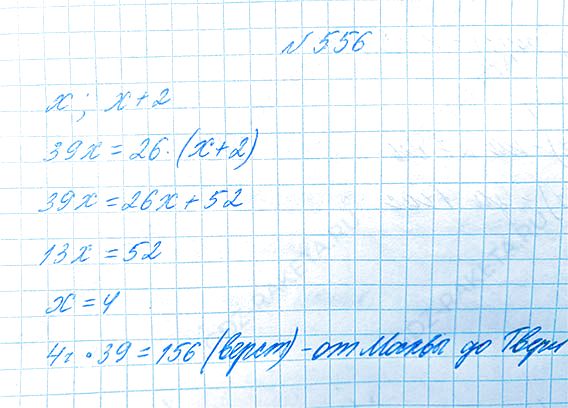 № 556
x ; x + 2
39x = 26 · (x + 2)
39x = 26x + 52
13x = 52
x = 4
4 · 39 = 156 (верст) - от Москвы до Твери